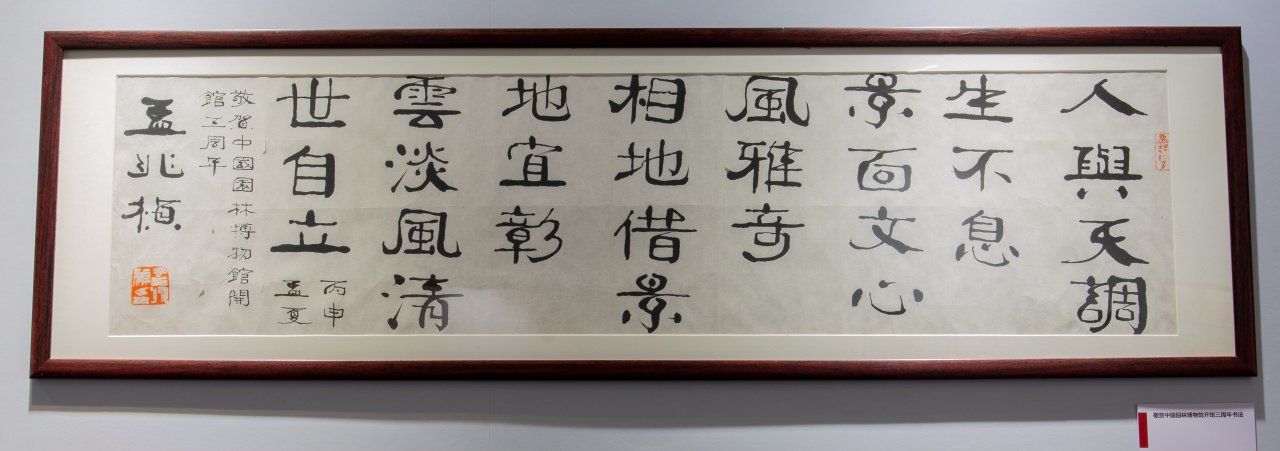 人與天調
生不息
景面文心
風雅奇
相地借景
地宜彰
雲淡風清
世自立
丙申
孟夏
敬賀中國園林博物館開
館三周年
孟兆禎
敬贺中国园林博物馆开馆三周年书法